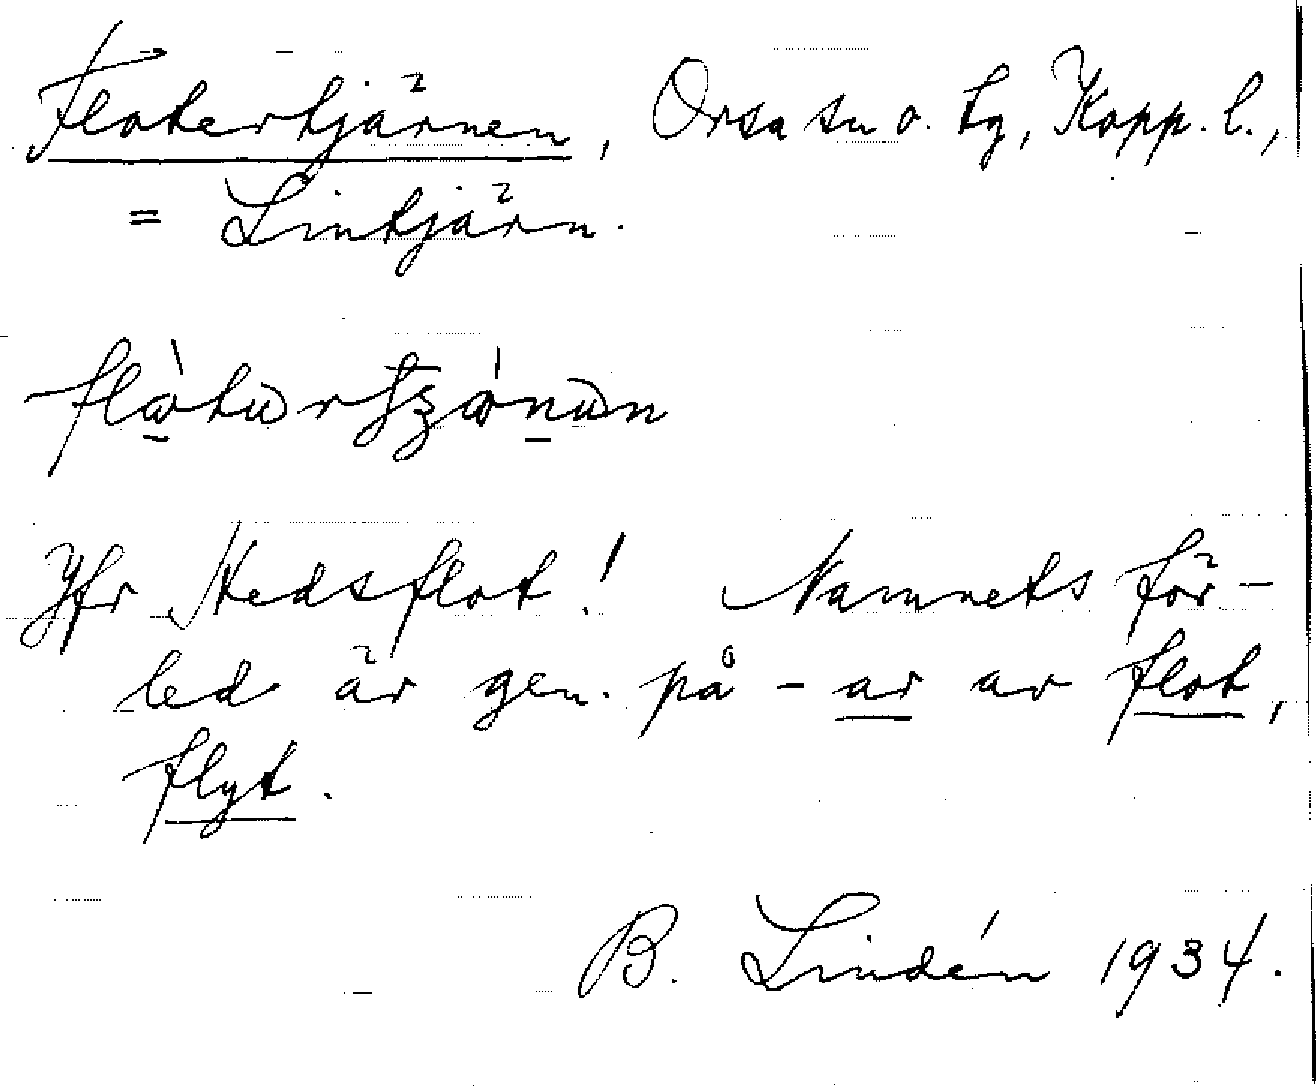 Flotertjärnen, Orsa sn o. tg, Kopp. l.,
= Lintjärn.
Jfr Hedsflot! Namnets för-
led är gen. på -ar av flot,
flyt.
B. Lindén 1934.